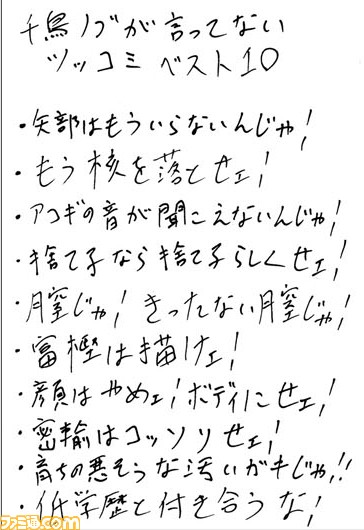 千鳥ノブが言ってない
ツッコミ ベスト10
・矢部はもういらないんじゃ!
・もう核を落とせェ!
・アコギの音が聞こえないんじゃ!
・捨て子なら捨て子らしくせェ!
・膣じゃ! きったない膣じゃ!
・冨樫は描けェ!
・顔はやめェ!ボディにせェ!
・密輸はコッソリせェ!
・育ちの悪そうな汚いガキじゃ!!
・低学歴と付き合うな!
ファミ通.com